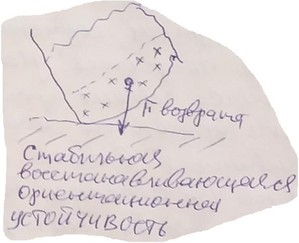 F возврата
Стабильная
восстанавливающаяся
ориентационная
устойчивость